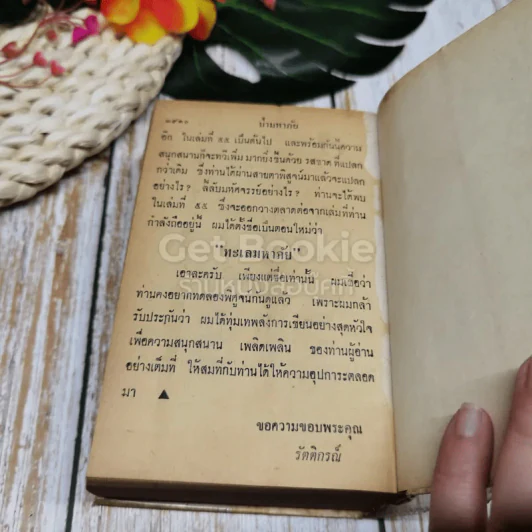 ป่ามหาภัย
อีก ในเล่มที่ ๕๕ เป็นต้นไป และพร้อมกันนี้ความ
สนุกสนานก็จะทวีเพิ่ม มากยิ่งขึ้นด้วย รสชาด ที่แปลก
กว่าเดิม ซึ่งท่านได้ผ่านสายตาพิสูจน์มาแล้วจะแปลก
อย่างไร? ลี้ลับมหัศจรรย์อย่างไร? ท่านจะได้พบ
ในเล่มที่ ๕๕ ซึ่งจะออกวางตลาดต่อจากเล่มที่ท่าน
กำลังถืออยู่นี้ ผมได้ตั้งชื่อเป็นตอนใหม่ว่า
Get Bookie
"ทะเลมหาภัย"
ร้านหนังสือบุ๊คกี้
เอาละครับ เพียงแต่ชื่อเท่านั้น ผมเชื่อว่า
ท่านคงอยากทดลองพิศูจน์กันดูแล้ว เพราะผมกล้า
รับประกันว่า ผมได้ทุ่มเทพลังการเขียนอย่างสุดหัวใจ
เพื่อความสนุกสนาน เพลิดเพลิน ของท่านผู้อ่าน
อย่างเต็มที่ ให้สมที่กับท่านได้ให้ความอุปการะตลอด
มา ▲
ขอความขอบพระคุณ
รัตติกรณ์